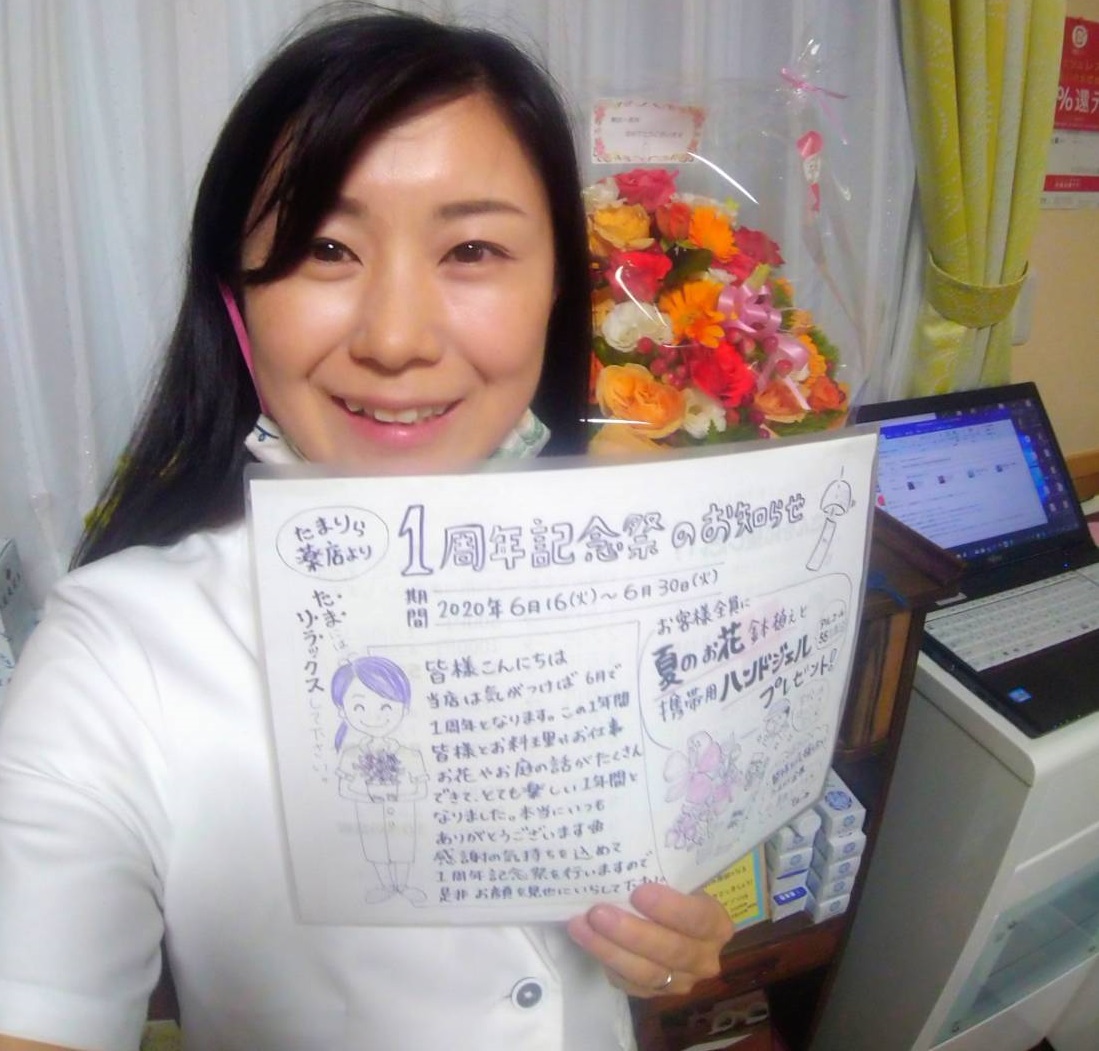 たまりら
薬店より
1周年記念祭のお知らせ
期間 2020年6月16(火)～6月30日(火)
たまには
リラックスして下さい。
皆様こんにちは
当店は気がつけば6月で
1周年となります。この1年間
皆様とお料理やお仕事
お花やお庭の話がたくさん
できて、とても楽しい1年間と
なりました。本当にいつも
ありがとうございます
感謝の気持ちを込めて
1周年記念祭を行いますので
是非お顔を見せにいらして下さい
お客様全員に
夏のお花鉢植えと
携帯用ハンドジェル
プレゼント!
アルコール
%還元